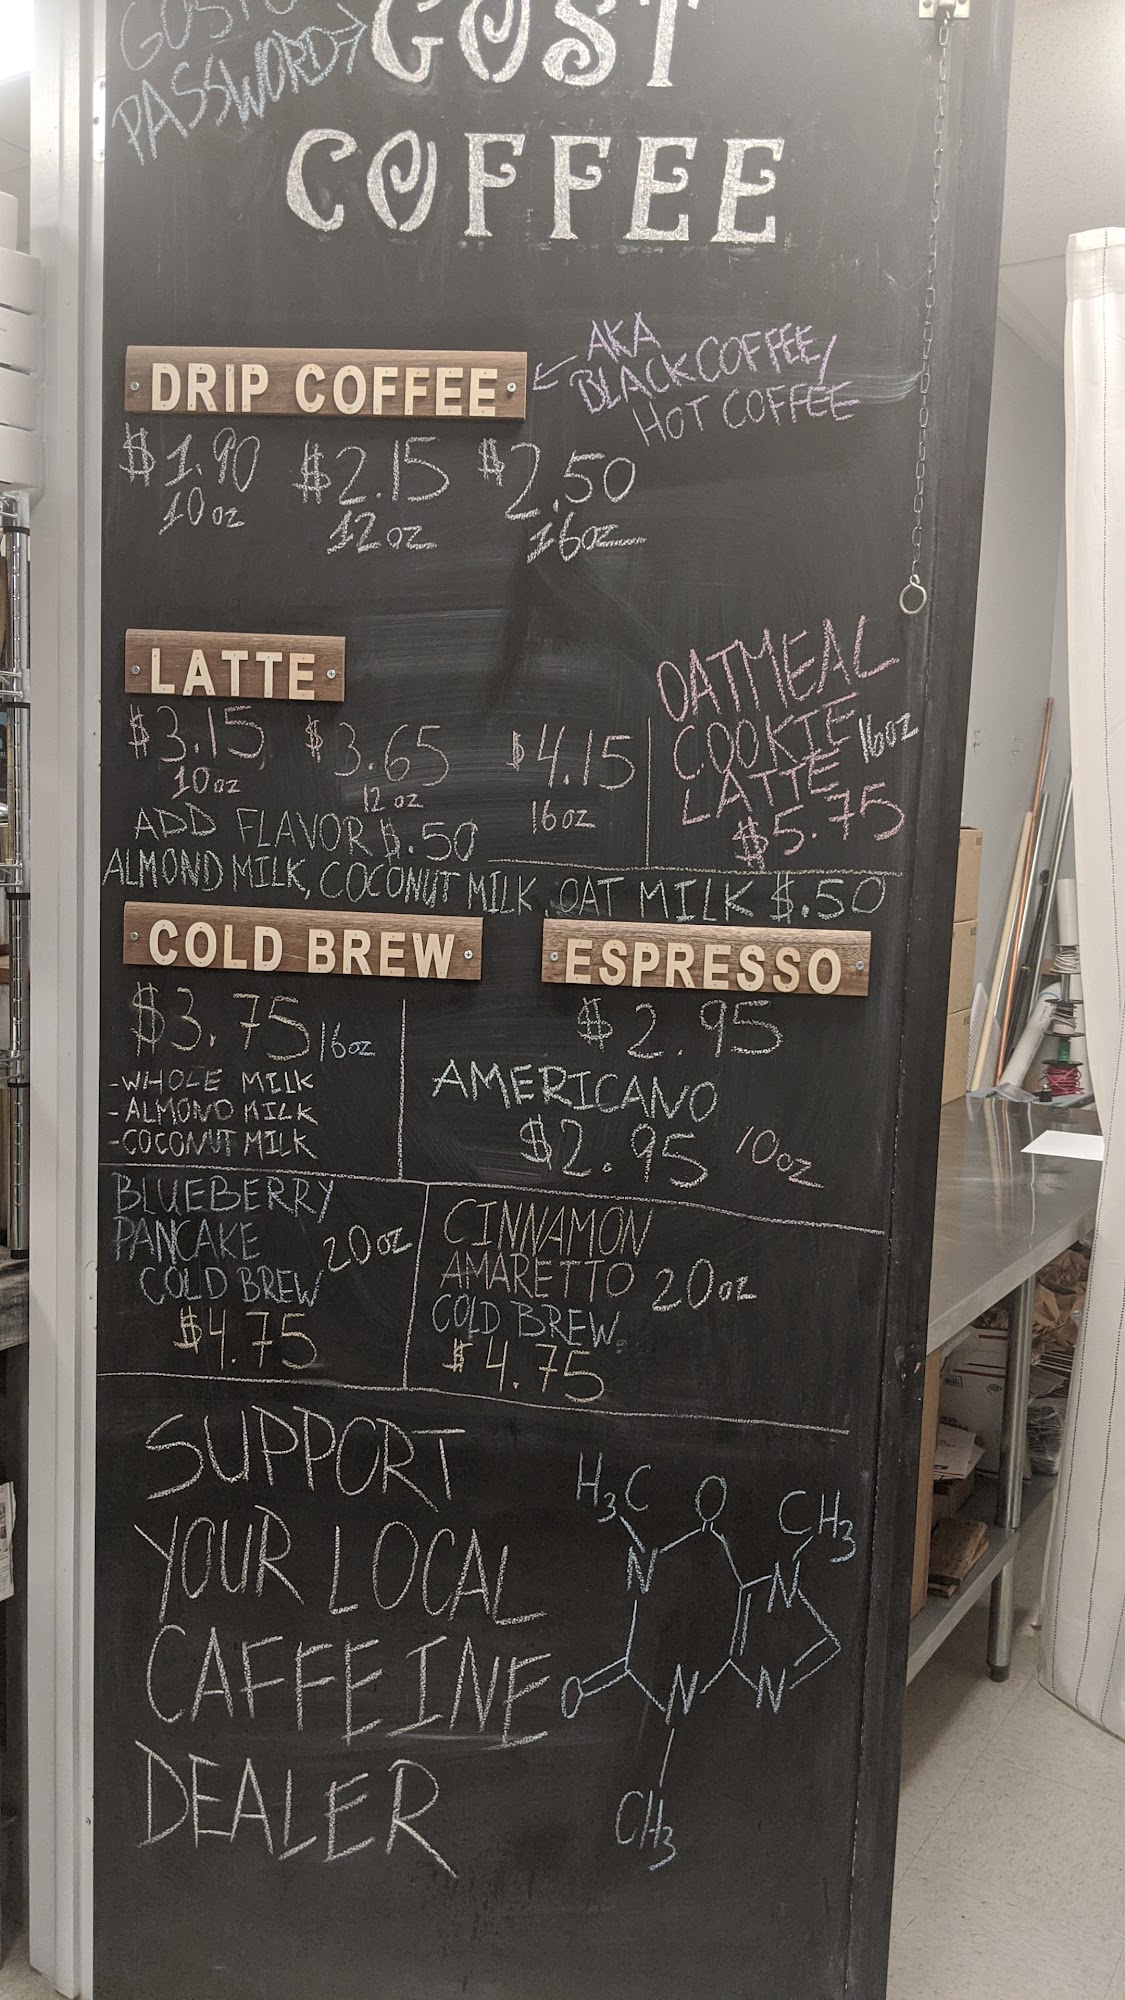 PASSWORD→
GOST
COFFEE
DRIP COFFEE
AKA
BLACK COFFEE/
HOT COFFEE
$1.90 $2.15 $2.50
10oz 12oz 16oz
LATTE
$3.15 $3.65 $4.15
10oz 12oz 16oz
OATMEAL
COOKIE 16oz
LATTE
$5.75
ADD FLAVOR $.50
ALMOND MILK, COCONUT MILK, OAT MILK $.50
COLD BREW
$3.75 16oz
-WHOLE MILK
-ALMOND MILK
-COCONUT MILK
ESPRESSO
$2.95
AMERICANO
$2.95 10oz
BLUEBERRY
PANCAKE 20oz
COLD BREW
$4.75
CINNAMON
AMARETTO 20oz
COLD BREW
$4.75
SUPPORT
YOUR LOCAL
CAFFEINE
DEALER
H3C O CH3
N N
O N N
CH3